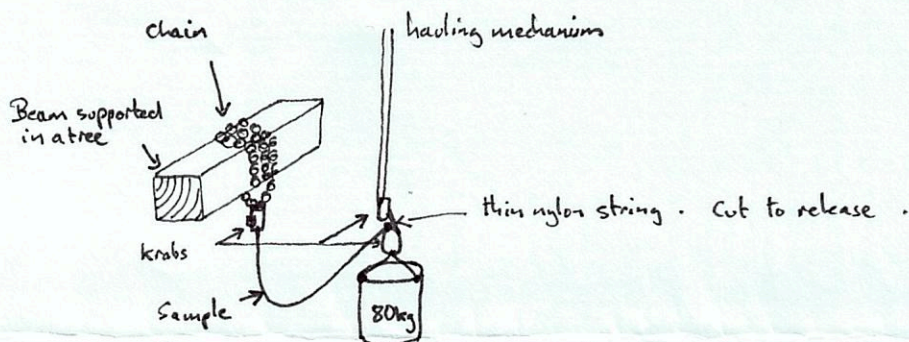 chain
hauling mechanism
Beam supported
in a tree
thin nylon string. Cut to release.
krabs
Sample
80kg